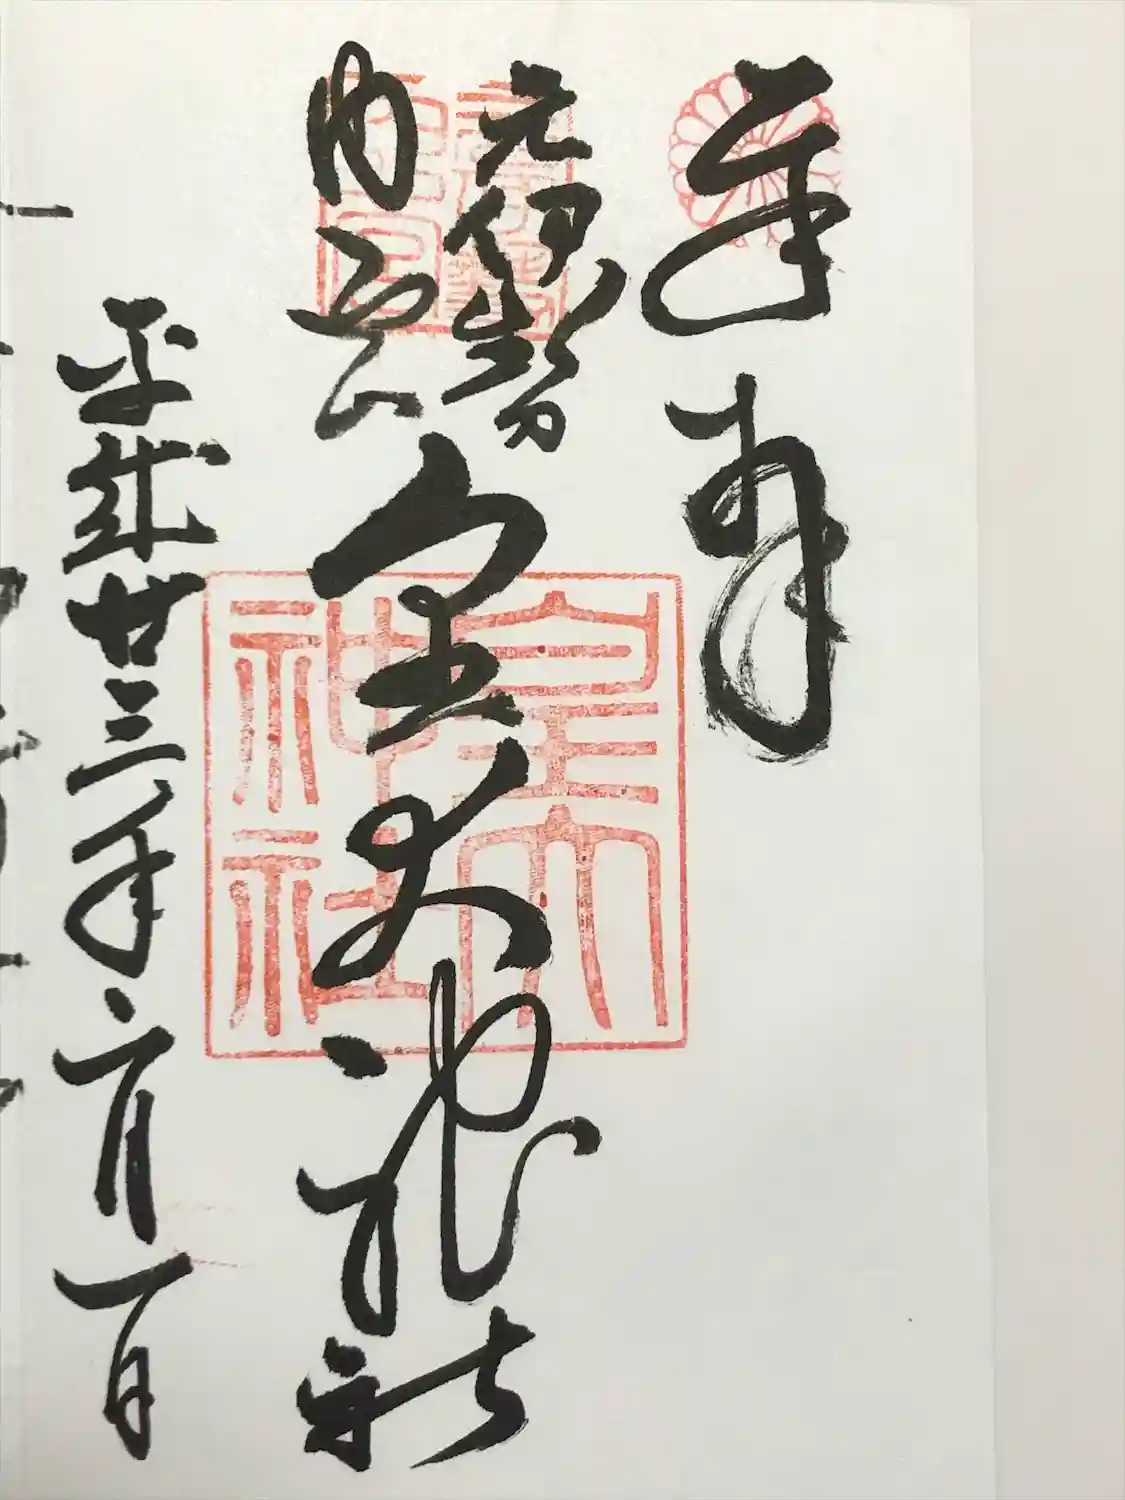 奉拝
元伊勢
内宮
皇大神社
平成廿三年六月一日
皇大
神社